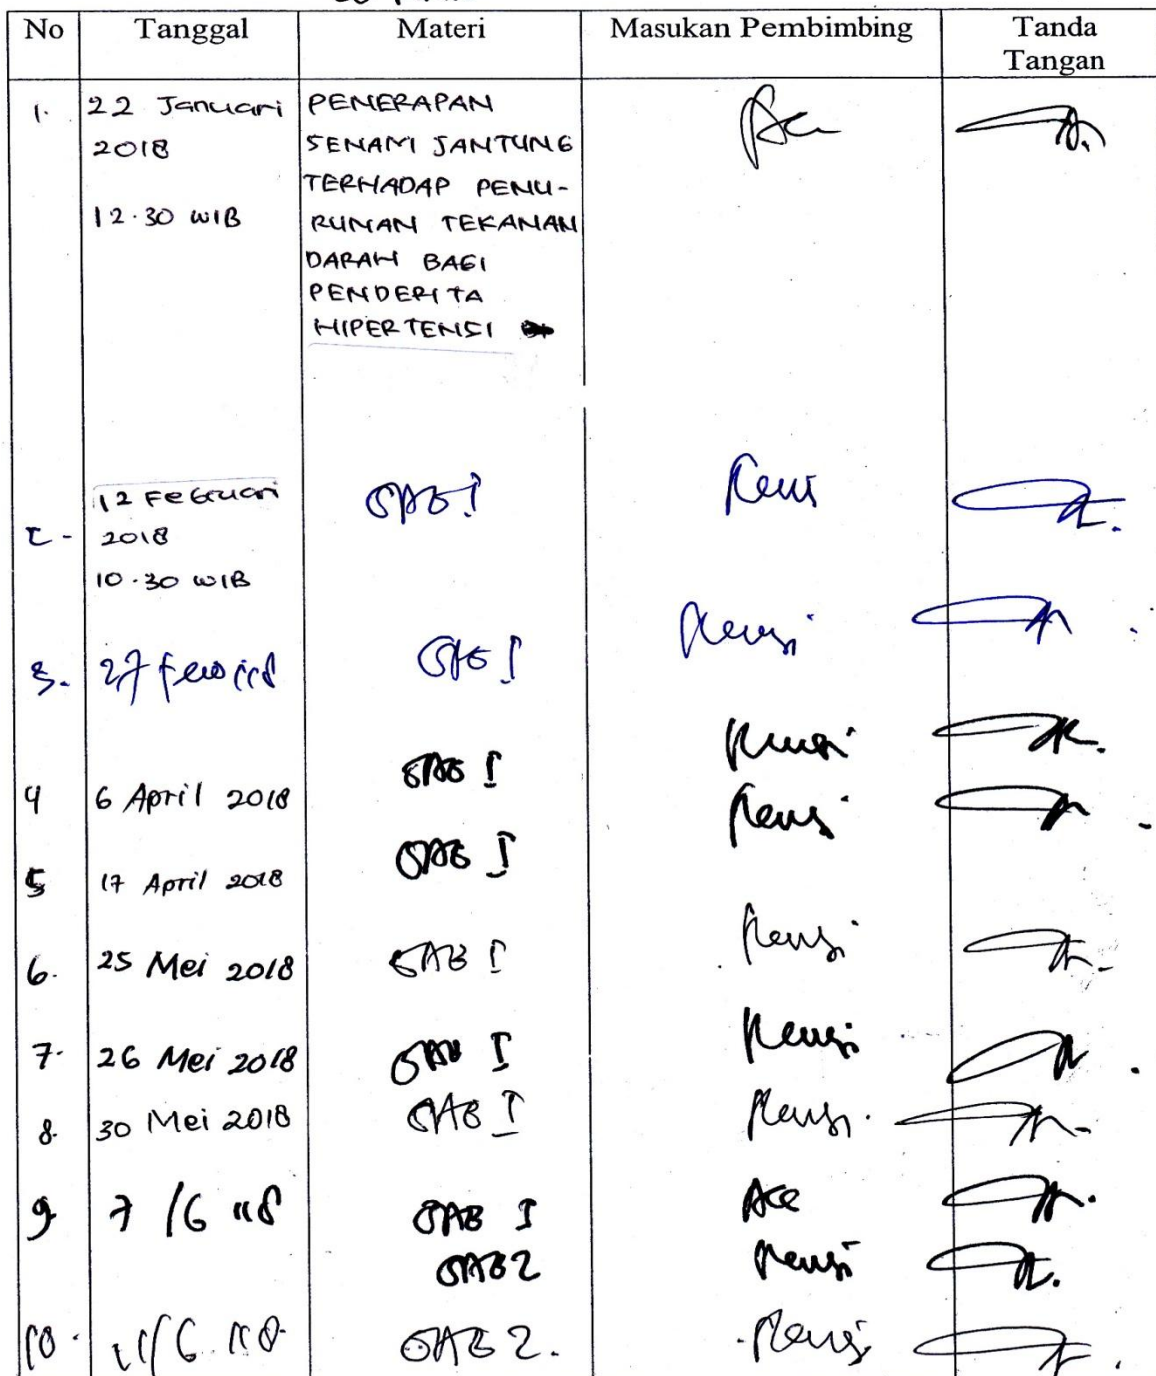 No Tanggal Materi Masukan Pembimbing Tanda Tangan
1. 22 Januari 2018 12.30 WIB
PENERAPAN
SENAM JANTUNG
TERHADAP PENU-
RUNAN TEKANAN
DARAH BAGI
PENDERITA
HIPERTENSI
Acc
2. 12 Februari 2018 10.30 WIB BAB I Revisi
3. 27 BAB I Revisi
4 6 April 2018 BAB I Revisi
5 17 April 2018 BAB I Revisi
6. 25 Mei 2018 BAB I Revisi
7. 26 Mei 2018 BAB I Revisi
8. 30 Mei 2018 BAB I Revisi
9 7/6 '18 BAB I Acc
BAB 2 Revisi
10. BAB 2. Revisi